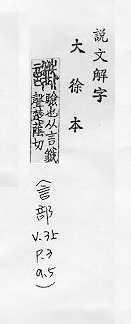 說文解字
大徐本
讖 驗也从言韱
聲楚蔭切
(言部
V.35
P.3
a.5)